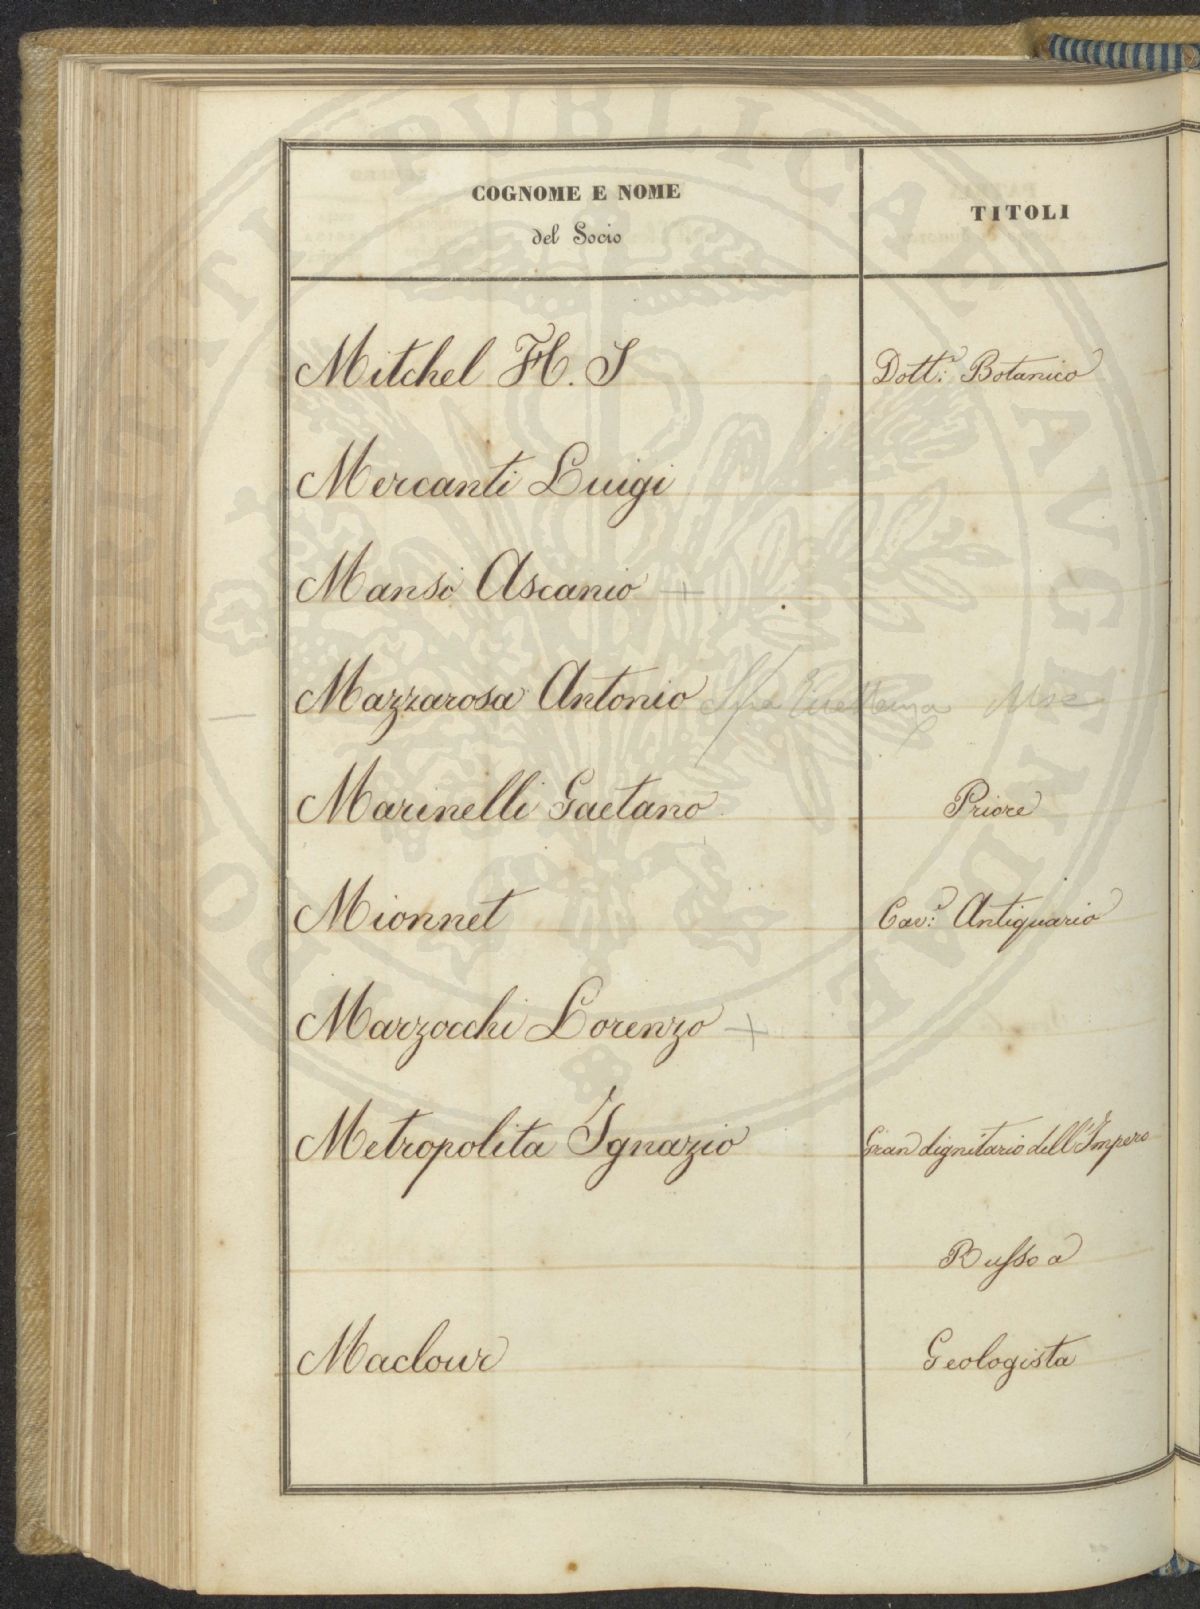 COGNOME E NOME
del Socio
TITOLI
Mitchel H. S Dott.r Botanico
Mercanti Luigi
Mansi Ascanio +
Mazzarosa Antonio Sua Eccellenza Mse
Marinelli Gaetano Priore
Mionnet Cav.r Antiquario
Marzocchi Lorenzo +
Metropolita Ignazio Gran dignitario dell'Impero
Russo a
Maclour Geologista
REI PUBLICAE AUGENDAE